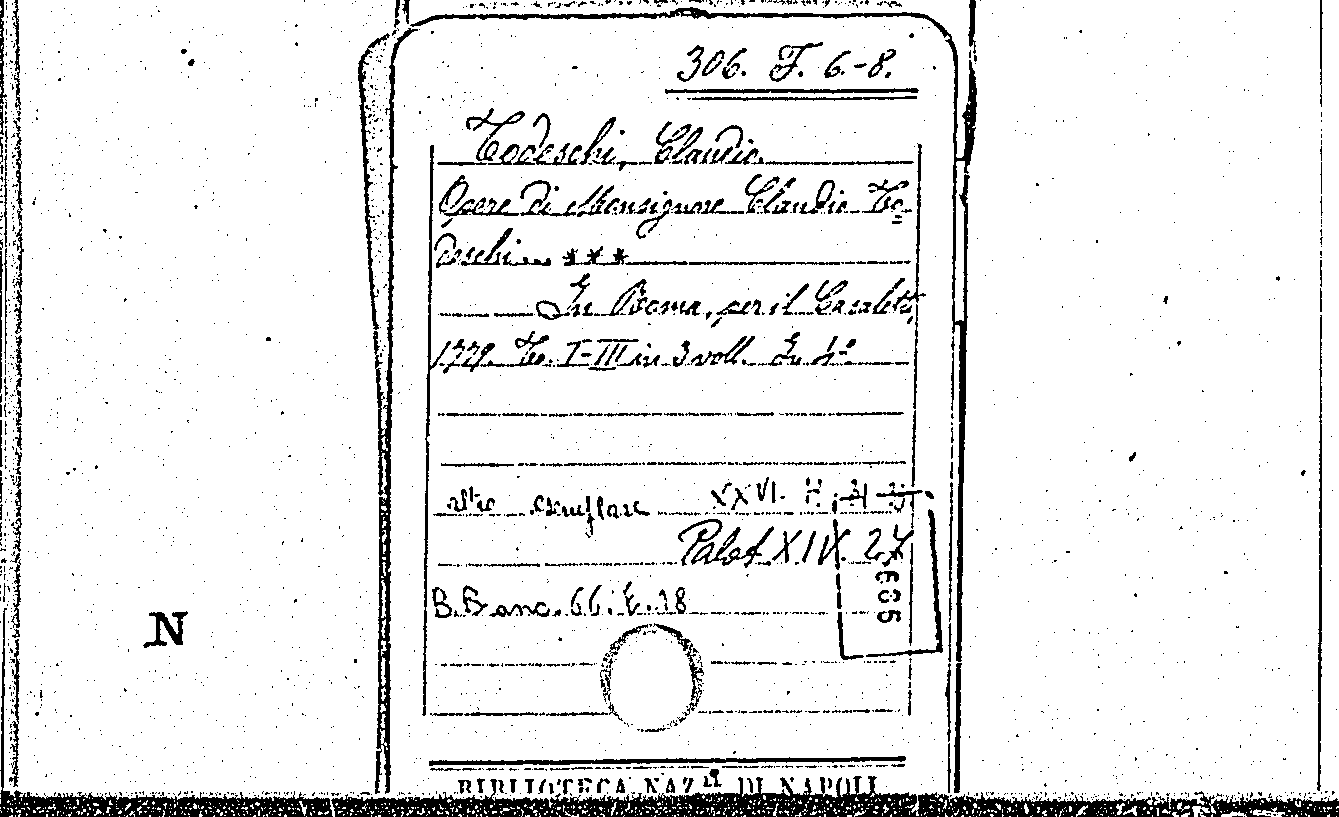 306. F. 6.-8.
Todeschi, Claudio.
Opere di Monsignore Claudio To=
deschi... ***
In Roma, per il Casaletti,
1779. To. I-III in 3 voll. In 4º
altro esemplare XXVI. H.
Palat. XIV. 27
B. Branc. 66. E. 18
N
BIBLIOTECA NAZ.LE DI NAPOLI